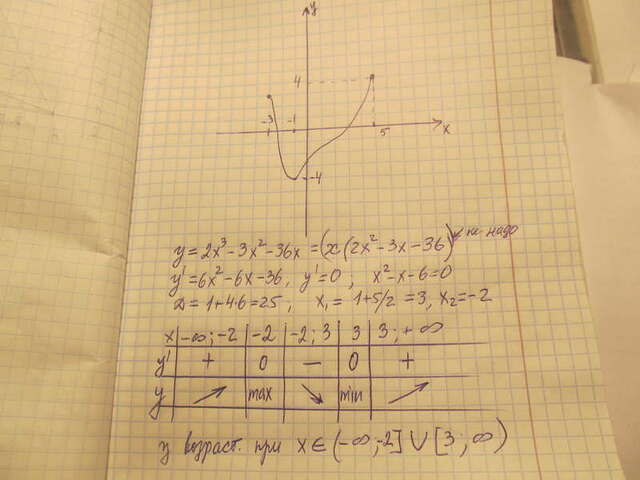 y
4
-3 -1 5 x
-4
y = 2x³ - 3x² - 36x = (x(2x² - 3x - 36) не надо
y' = 6x² - 6x - 36, y' = 0; x² - x - 6 = 0
D = 1 + 4·6 = 25, x₁ = 1+5/2 = 3, x₂ = -2
x | -∞; -2 | -2 | -2; 3 | 3 | 3; +∞
y' | + | 0 | — | 0 | +
y | ↗ | max | ↘ | min | ↗
y возраст. при x ∈ (-∞; -2] ∪ [3; ∞)